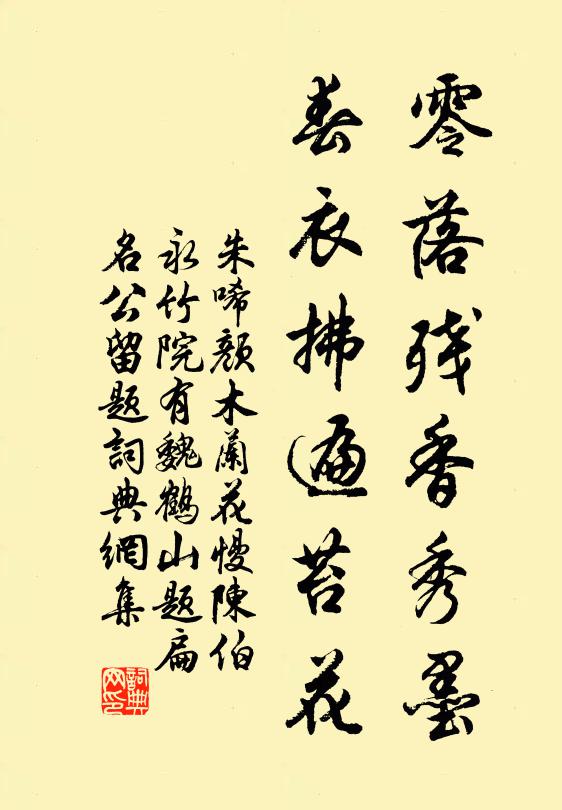 零落残香秀墨
春衣拂遍苔花
朱唏颜木蘭花慢陳伯
永竹院有魏鶴山题扁
名公留题詞典網集
詞典網印